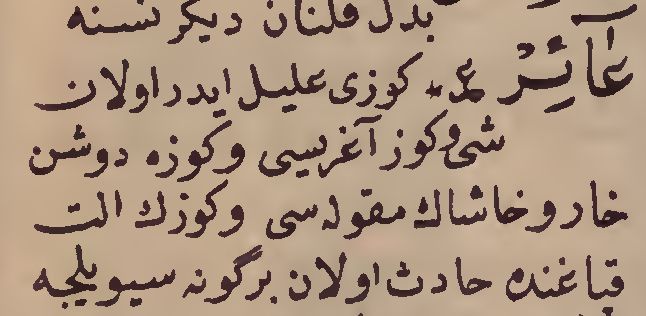 بدل قلنان ديكر نسنه
عَآئِرْ ع۰ كوزى عليل ايدر اولان
شى وكوز آغريسى وكوزه دوشن
خار وخاشاك مقوله سى وكوزك الت
قپاغنده حادث اولان برگونه سيويلجه